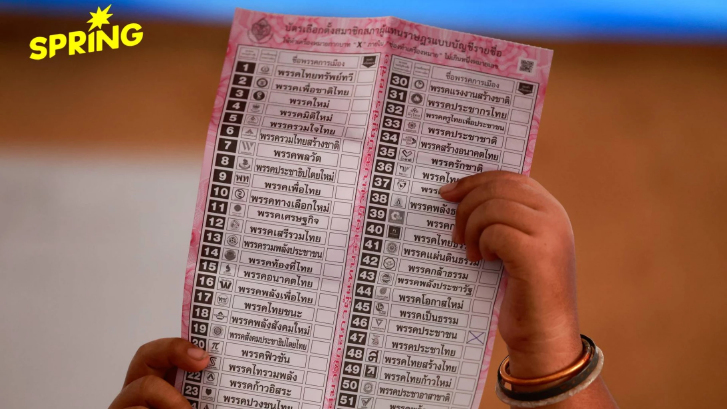 SPRING
บัตรเลือกตั้งสมาชิกสภาผู้แทนราษฎรแบบบัญชีรายชื่อ
ชื่อพรรคการเมือง
1 พรรคไทยทรัพย์ทวี
2 พรรคเพื่อชาติไทย
3 พรรคใหม่
4 พรรคมิติใหม่
5 พรรครวมใจไทย
6 พรรครวมไทยสร้างชาติ
7 พรรคพลวัต
8 พรรคประชาธิปไตยใหม่
9 พท พรรคเพื่อไทย
10 พรรคทางเลือกใหม่
11 พรรคเศรษฐกิจ
12 พรรคเสรีรวมไทย
13 พรรครวมพลังประชาชน
14 พรรคท้องที่ไทย
15 พรรคอนาคตไทย
16 พรรคพลังเพื่อไทย
17 พรรคไทยชนะ
18 พรรคพลังสังคมใหม่
19 พรรคสังคมประชาธิปไตยไทย
20 พรรคฟิวชัน
พรรคไทรวมพลัง
22 พรรคก้าวอิสระ
23 พรรคปวงชนไทย
ชื่อพรรคการเมือง
30 พรรคแรงงานสร้างชาติ
31 พรรคประชากรไทย
32 พรรคครูไทยเพื่อประชาชน
33 พรรคประชาชาติ
34 พรรคสร้างอนาคตไทย
35 พรรครักชาติ
36 พรรคไท
37 พรร
38 พรรคพลัง
39 พรรค
40 พรรคไทย
41 พรรคแผ่นดินธรรม
42 พรรคกล้าธรรม
43 พรรคพลังประชารัฐ
44 พรรคโอกาสใหม่
45 พรรคเป็นธรรม
46 พรรคประชาชน
47 พรรคประชาไทย
48 พรรคไทยสร้างไทย
49 พรรคไทยก้าวใหม่
50 พรรคประชาอาสาชาติ
51